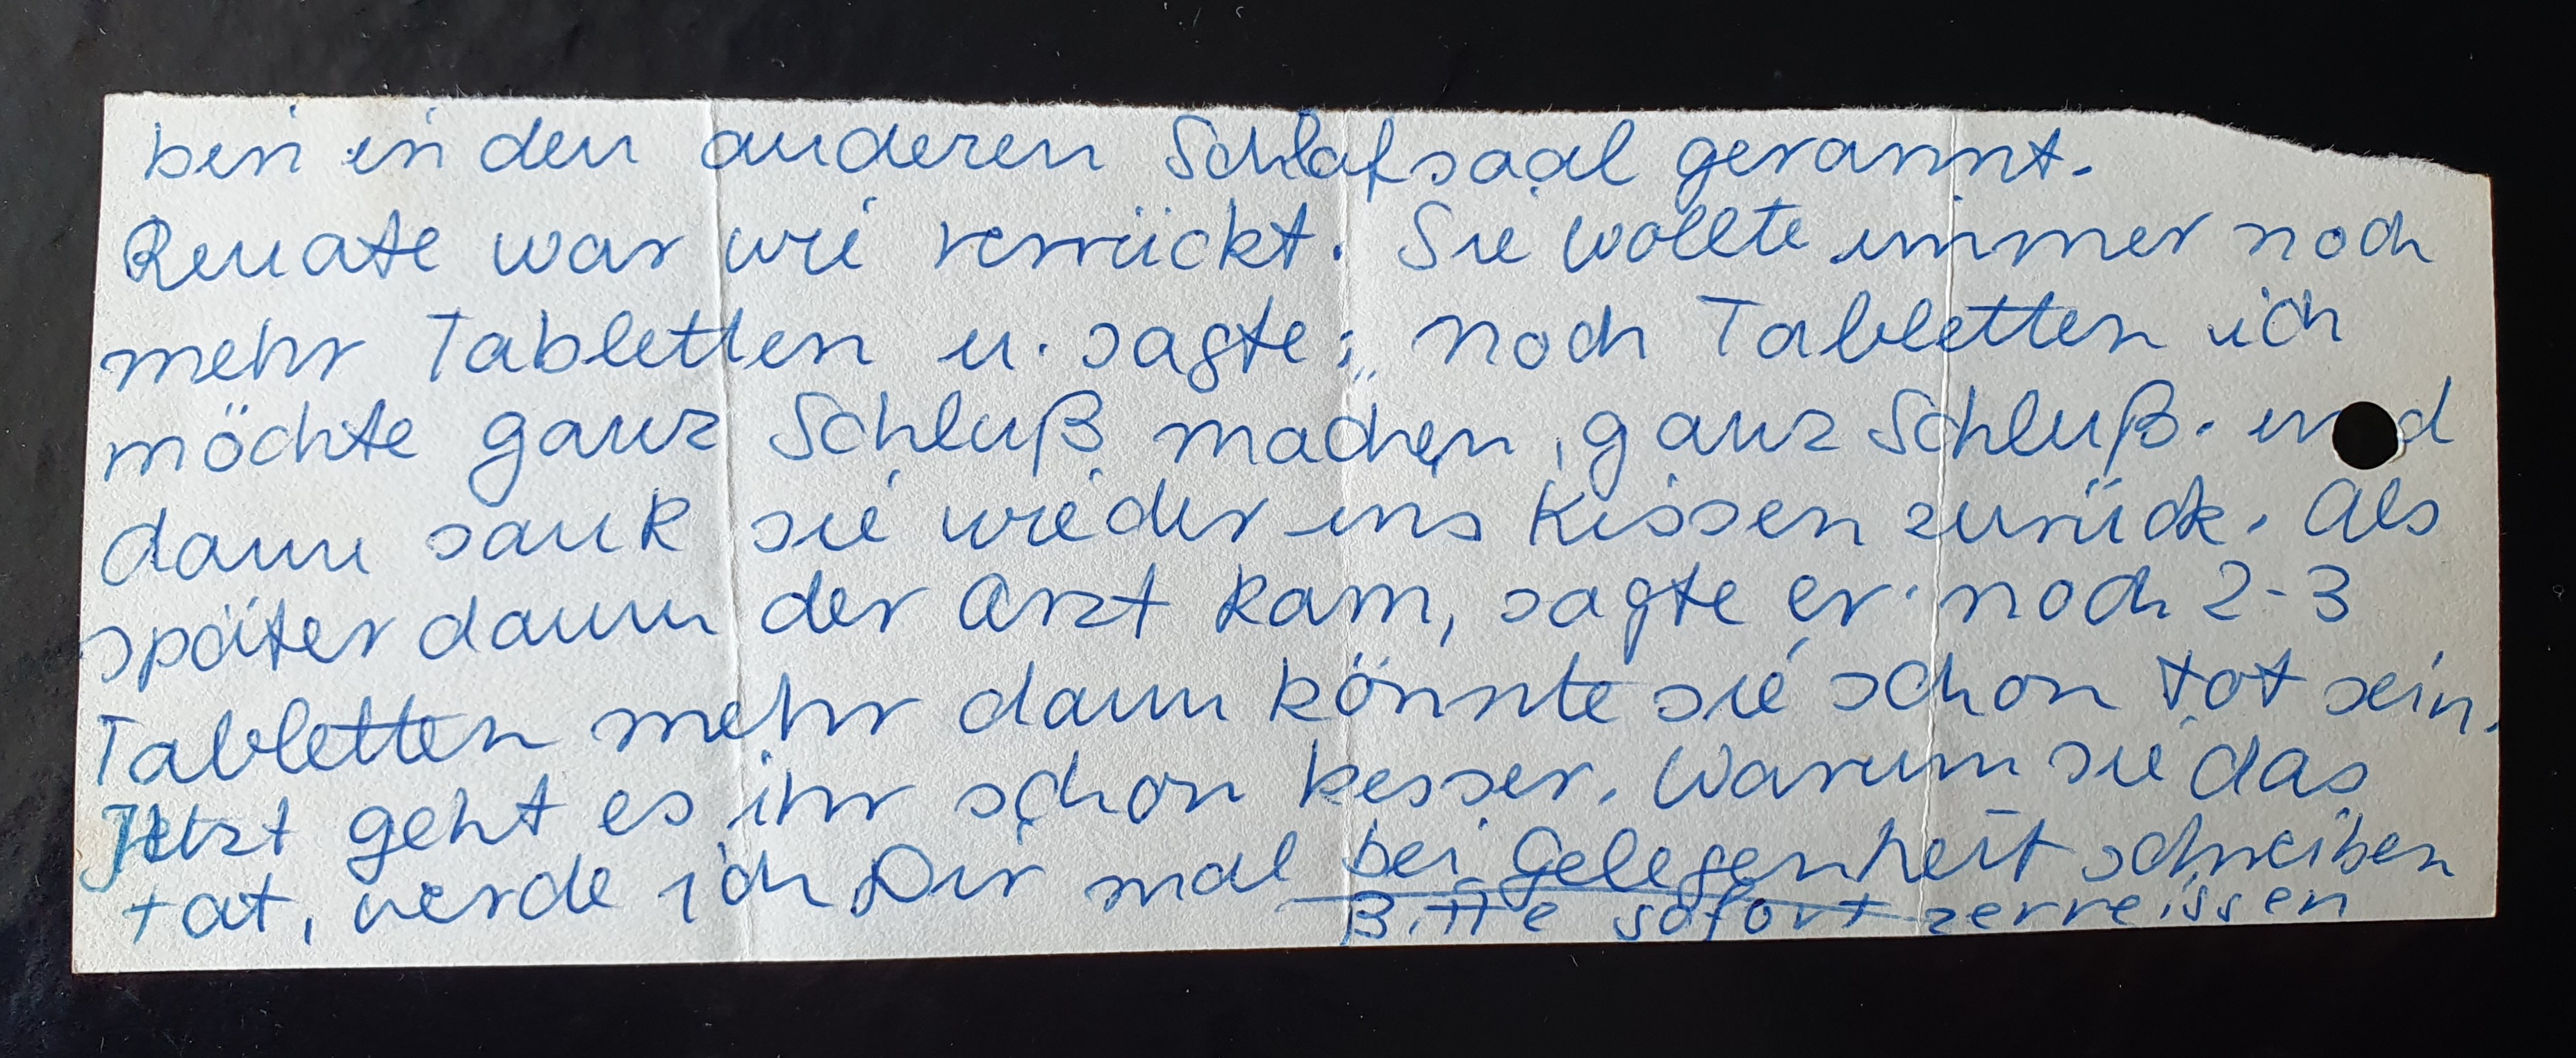 bin in den anderen Schlafsaal gerannt.
Renate war wie verrückt. Sie wollte immer noch
mehr Tabletten u. sagte: „noch Tabletten ich
möchte ganz Schluß machen, ganz Schluß. und
dann sank sie wieder ins Kissen zurück. Als
später dann der Arzt kam, sagte er noch 2-3
Tabletten mehr dann könnte sie schon tot sein.
Jetzt geht es ihr schon besser. Warum sie das
tat, werde ich Dir mal bei Gelegenheit schreiben
Bitte sofort zerreissen